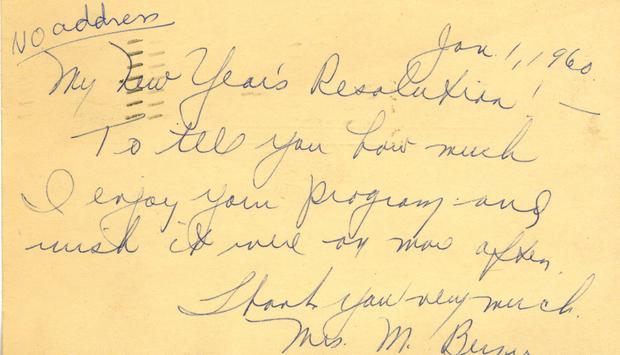 NO address
Jan. 1, 1960.
My New Year's Resolution! —
To tell you how much
I enjoy your program and
wish it were on moe often.
Thank you very much.
Mrs. M.